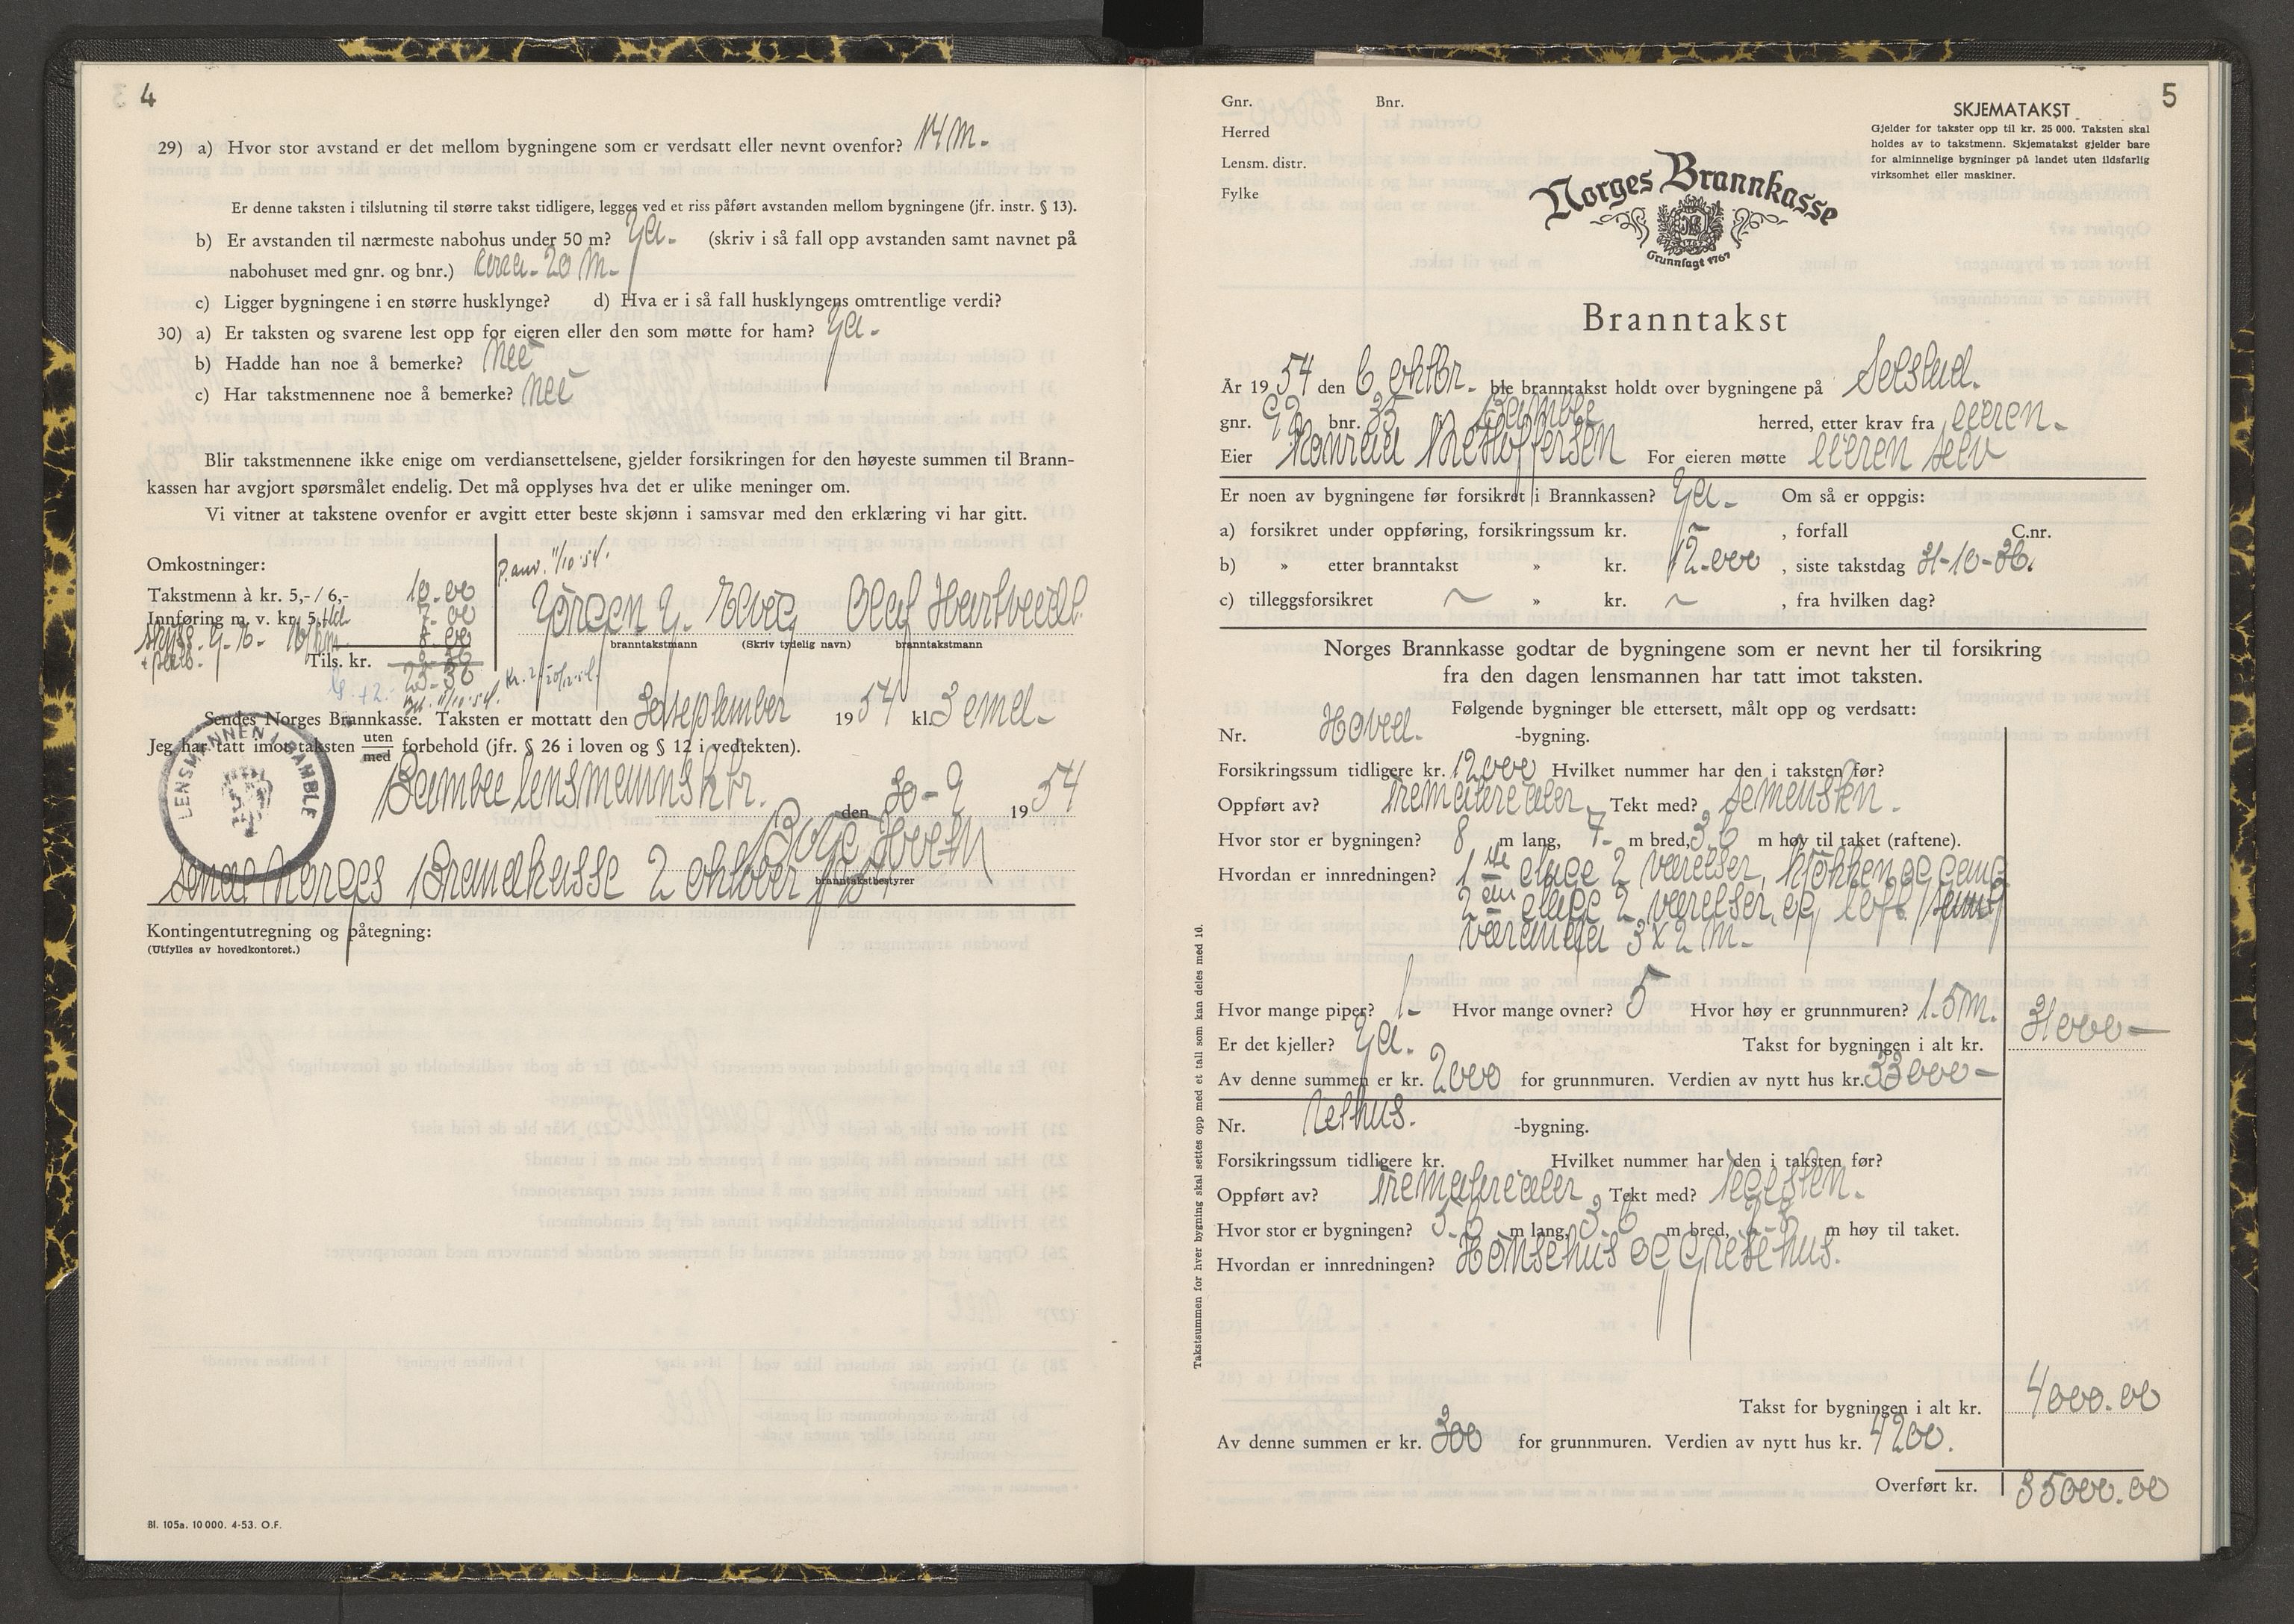 4
29) a) Hvor stor avstand er det mellom bygningene som er verdsatt eller nevnt ovenfor? 14 m-
Er denne taksten i tilslutning til større takst tidligere, legges ved et riss påført avstanden mellom bygningene (jfr. instr. § 13).
b) Er avstanden til nærmeste nabohus under 50 m? Ja- (skriv i så fall opp avstanden samt navnet på
nabohuset med gnr. og bnr.) circa- 20 m-
c) Ligger bygningene i en større husklynge? d) Hva er i så fall husklyngens omtrentlige verdi?
30) a) Er taksten og svarene lest opp for eieren eller den som møtte for ham? Ja-
b) Hadde han noe å bemerke? Nei
c) Har takstmennene noe å bemerke? Nei
Blir takstmennene ikke enige om verdiansettelsene, gjelder forsikringen for den høyeste summen til Brann-
kassen har avgjort spørsmålet endelig. Det må opplyses hva det er ulike meninger om.
Vi vitner at takstene ovenfor er avgitt etter beste skjønn i samsvar med den erklæring vi har gitt.
Omkostninger:
Takstmenn à kr. 5,- / 6,- 10-00
Innføring m. v. kr. 5,+ 7-00
Skyss 8-00
Tils. kr.
11/10-54.
Jørgen J. Olaf Hartvedt
branntakstmann (Skriv tydelig navn) branntakstmann
Sendes Norges Brannkasse. Taksten er mottatt den 30 september 1954 kl. 3 emd-
Jeg har tatt imot taksten uten/med forbehold (jfr. § 26 i loven og § 12 i vedtekten).
LENSMANNEN I BAMBLE
Bamble lensmannsktr. den 30-9 1954
branntakstbestyrer
Sendt Norges Brandkasse 2 oktober 1954
Kontingentutregning og påtegning:
(Utfylles av hovedkontoret.)
Bl. 105a. 10 000. 4-53. O.F.
5
Gnr. Bnr.
Herred
Lensm. distr.
Fylke
SKJEMATAKST
Gjelder for takster opp til kr. 25 000. Taksten skal
holdes av to takstmenn. Skjematakst gjelder bare
for alminnelige bygninger på landet uten ildsfarlig
virksomhet eller maskiner.
Norges Brannkasse
Grunnlagt 1767
Branntakst
År 1954 den 6 oktbr- ble branntakst holdt over bygningene på
gnr. 92 bnr. 35 Bamble herred, etter krav fra eieren-
Eier Kristoffersen For eieren møtte eieren selv
Er noen av bygningene før forsikret i Brannkassen? Ja- Om så er oppgis:
a) forsikret under oppføring, forsikringssum kr. , forfall C.nr.
b) » etter branntakst » kr. 12-000 , siste takstdag 31-10-36.
c) tilleggsforsikret ~ » kr. ~ , fra hvilken dag?
Norges Brannkasse godtar de bygningene som er nevnt her til forsikring
fra den dagen lensmannen har tatt imot taksten.
Følgende bygninger ble ettersett, målt opp og verdsatt:
Nr. Hoved- -bygning.
Forsikringssum tidligere kr. 12000 Hvilket nummer har den i taksten før?
Oppført av? trematerialer Tekt med? sementsten-
Hvor stor er bygningen? 8 m lang, 7- m bred, 3,6 m høy til taket (raftene).
Hvordan er innredningen? 1ste etage 2 værelser, kjøkken og gang
2en etage 2 værelser, og loft, samt
væranda 3 x 2 m-
Hvor mange piper? 1- Hvor mange ovner? 5 Hvor høy er grunnmuren? 1.5 m.
Er det kjeller? Ja. Takst for bygningen i alt kr. 31000-
Av denne summen er kr. 2000 for grunnmuren. Verdien av nytt hus kr. 33000-
Nr. Uthus. -bygning.
Forsikringssum tidligere kr. Hvilket nummer har den i taksten før?
Oppført av? trematerialer Tekt med? teglsten-
Hvor stor er bygningen? 5-6 m lang, 3-6 m bred, m høy til taket.
Hvordan er innredningen? Hønsehus og grisehus.
Takst for bygningen i alt kr. 4000.00
Av denne summen er kr. 300 for grunnmuren. Verdien av nytt hus kr. 4200.
Overført kr. 35000.00
Takstsummen for hver bygning skal settes opp med et tall som kan deles med 10.